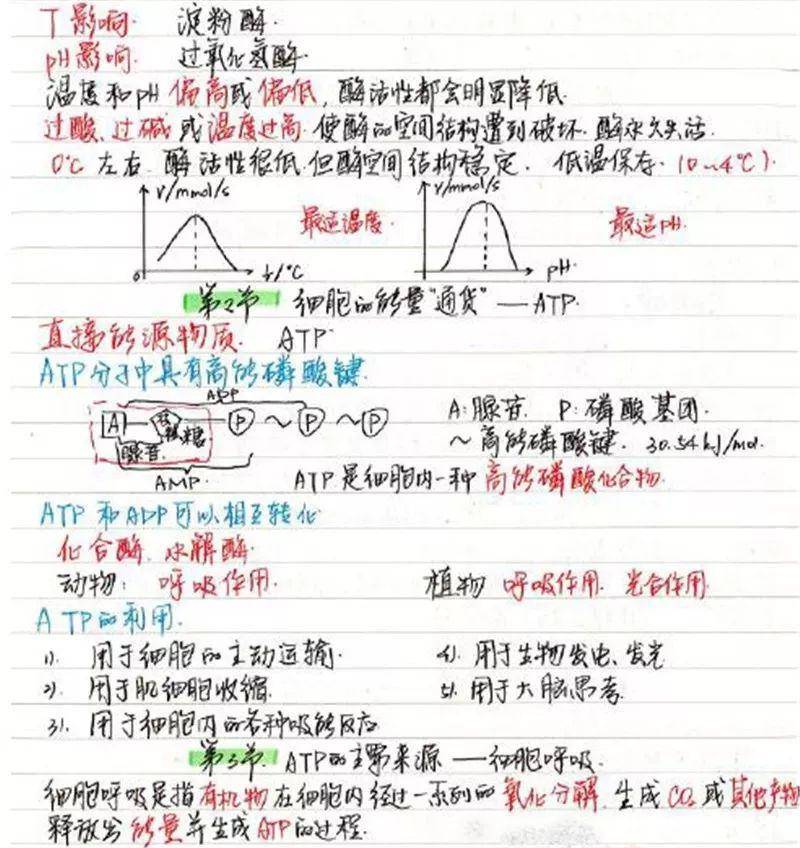 T影响. 淀粉酶.
pH影响. 过氧化氢酶.
温度和pH偏高或偏低，酶活性都会明显降低.
过酸、过碱或温度过高.使酶的空间结构遭到破坏.酶永久失活.
0℃左右.酶活性很低.但酶空间结构稳定. 低温保存.(0~4℃).
v/mmol/s 最适温度. v/mmol/s 最适pH.
0 t/℃ pH
第2节 细胞的能量"通货" — ATP.
直接能源物质. ATP.
ATP分子中具有高能磷酸键.
ADP
A — 核糖 — P ~ P ~ P A:腺苷. P:磷酸基团.
腺苷. ~高能磷酸键. 30.54kJ/mol.
AMP. ATP是细胞内一种高能磷酸化合物.
ATP和ADP可以相互转化
化合酶、水解酶.
动物: 呼吸作用. 植物 呼吸作用.光合作用.
ATP的利用.
1). 用于细胞的主动运输. 4). 用于生物发电、发光
2). 用于肌细胞收缩. 5). 用于大脑思考.
3). 用于细胞内的各种吸能反应
第3节. ATP的主要来源 — 细胞呼吸.
细胞呼吸是指有机物在细胞内经过一系列的氧化分解.生成CO₂或其他产物
释放出能量并生成ATP的过程.